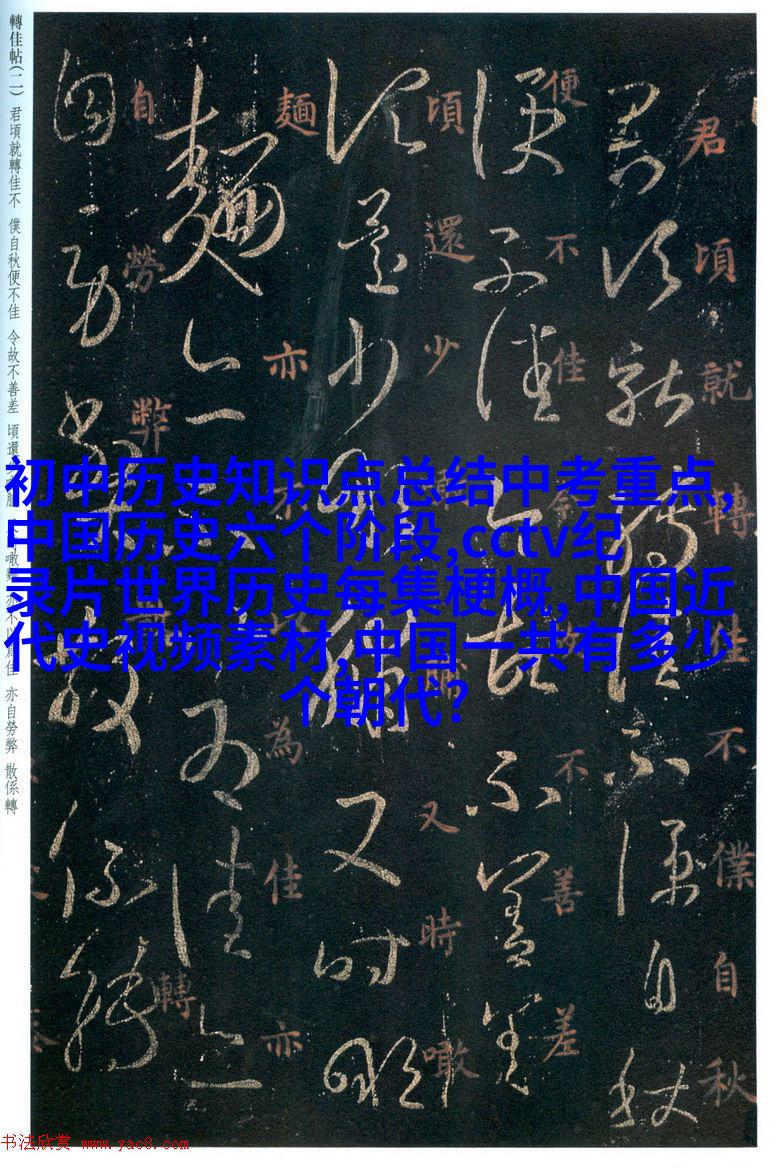 初中历史知识点总结中考重点,
中国历史六个阶段,cctv纪
录片世界历史每集梗概,中国近
代史视频素材,中国一共有多少
个朝代?
君頃就轉佳不僕自秋
便不佳今故不善差
頃還少噉脯又時噉
麵亦不以為佳亦
自勞弊散係轉
轉佳帖(二) 君頃就轉佳不 僕自秋便不佳 令故不善差 頃還 佳 亦自勞弊 散係轉
书法欣赏 www.yac8.com